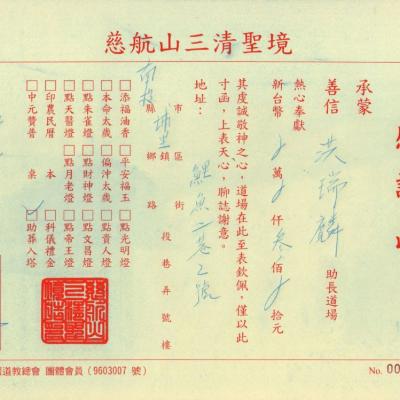 慈航山三清聖境
承蒙
善信 洪瑞麟 助長道場
熱心奉獻
新台幣 萬 仟叁佰 拾元
其虔誠敬神之心,道場在此至表欽佩,僅以此
寸函,上表天心,聊誌謝意。
地址:
南投 縣市 埔里 鄉鎮區 鯉魚 路街 段 二巷 弄 2號 樓
□添福油香 □平安福玉 □點光明燈
□本命太歲 □偏沖太歲 □點貴人燈
□點朱雀燈 □點財神燈 □點文昌燈
□點天醫燈 □點月老燈 □點帝王燈
□印農民曆 本 □科儀禮金
□中元贊普 桌 ✓□助葬入塔
道教總會 團體會員(9603007 號)
No. 00